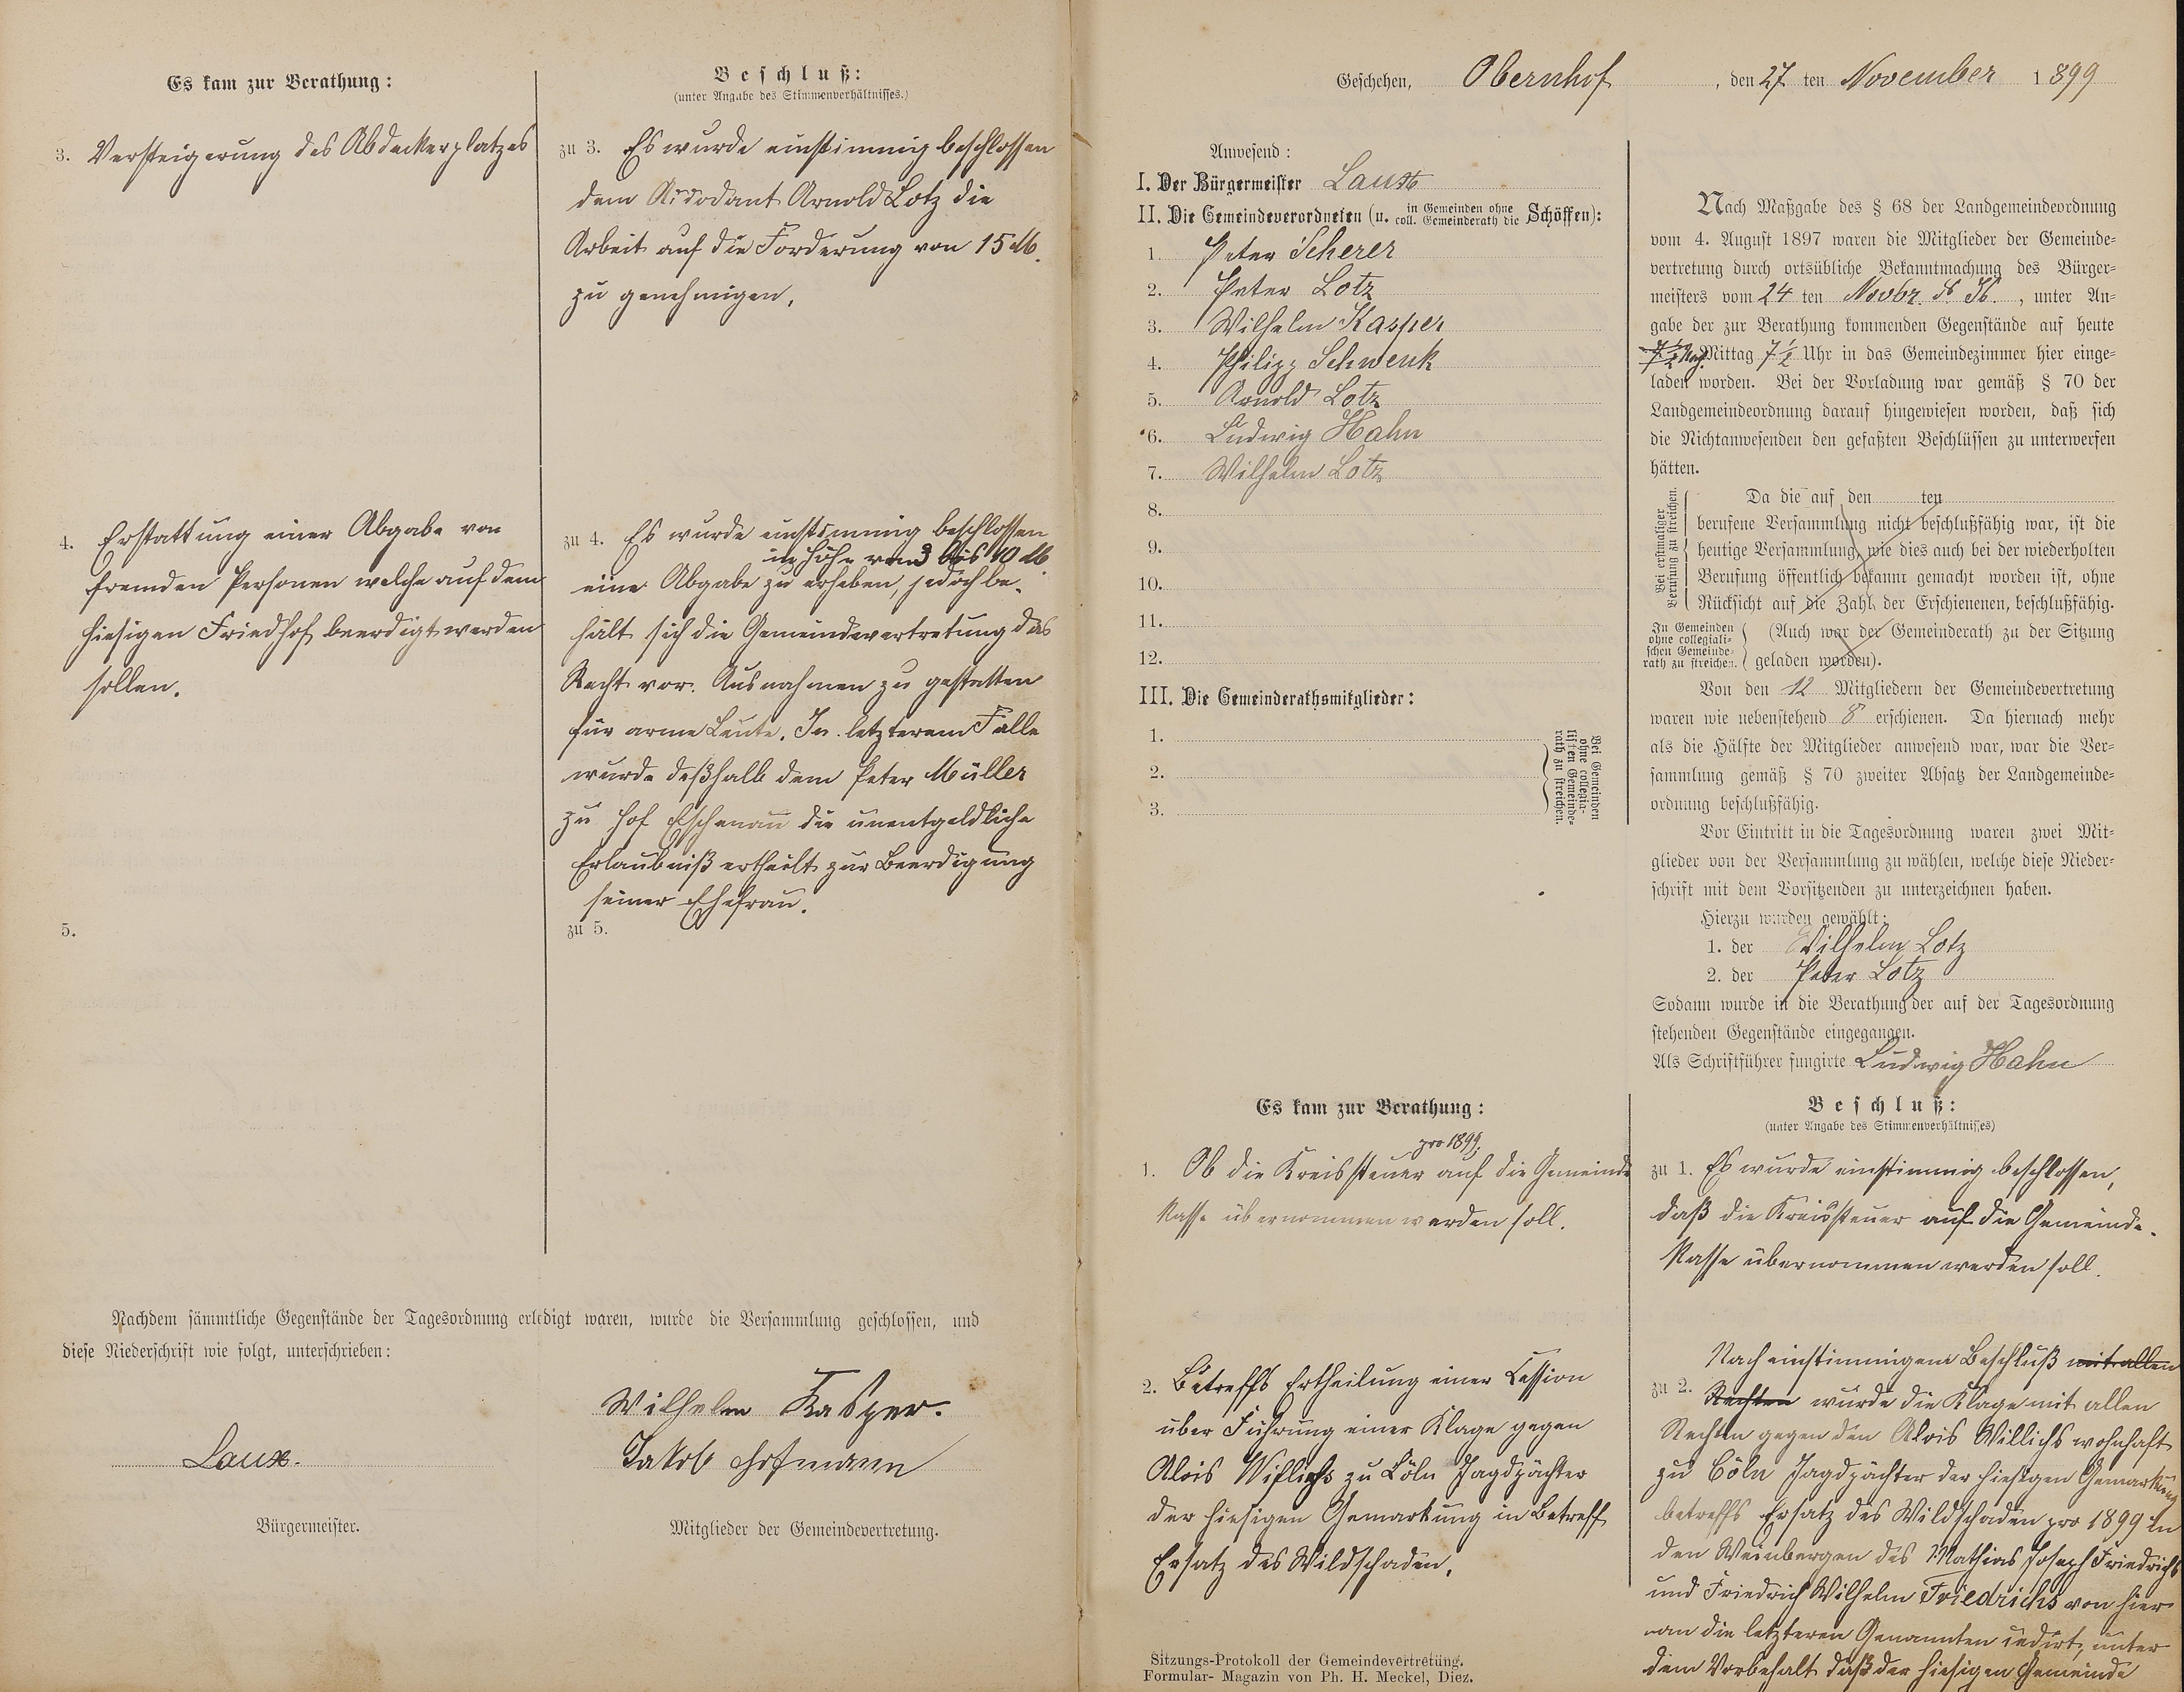 Es kam zur Berathung:
Beschluß:
(unter Angabe des Stimmenverhältnisses.)
3. Versteigerung des Abdeckerplatzes
zu 3. Es wurde einstimmig beschlossen
dem Arnold Lotz die
Arbeit auf die Forderung von 15 M.
zu genehmigen.
4. Erstattung einer Abgabe von
fremden Personen welche auf dem
hiesigen Friedhof beerdigt werden
sollen.
zu 4. Es wurde einstimmig beschlossen
in Höhe von 3 bis 10 M
eine Abgabe zu erheben, jedoch be-
hält sich die Gemeindevertretung das
Recht vor. Ausnahmen zu gestatten
für arme Leute. In letzterem Falle
wurde deßhalb dem Peter Müller
zu Hof Eschenau die unentgeldliche
Erlaubniß ertheilt zur Beerdigung
seiner Ehefrau.
5.
zu 5.
Nachdem sämmtliche Gegenstände der Tagesordnung erledigt waren, wurde die Versammlung geschlossen, und
diese Niederschrift wie folgt, unterschrieben:
Wilhelm Kasper.
Laux.
Jakob Hofmann
Bürgermeister.
Mitglieder der Gemeindevertretung.
Geschehen, Obernhof, den 27 ten November 1899
Anwesend:
I. Der Bürgermeister Laux
II. Die Gemeindeverordneten (u. in Gemeinden ohne coll. Gemeinderath die Schöffen):
1. Peter Scherer
2. Peter Lotz
3. Wilhelm Kasper
4. Philipp Schwenk
5. Arnold Lotz
6. Ludwig Hahn
7. Wilhelm Lotz
8.
9.
10.
11.
12.
III. Die Gemeinderathsmitglieder:
1.
2.
3.
Bei Gemeinden
ohne collegia-
lischen Gemeinde-
rath zu streichen.
Nach Maßgabe des § 68 der Landgemeindeordnung
vom 4. August 1897 waren die Mitglieder der Gemeinde-
vertretung durch ortsübliche Bekanntmachung des Bürger-
meisters vom 24 ten Novbr. d. Js., unter An-
gabe der zur Berathung kommenden Gegenstände auf heute
Nach Mittag 7½ Uhr in das Gemeindezimmer hier einge-
laden worden. Bei der Vorladung war gemäß § 70 der
Landgemeindeordnung darauf hingewiesen worden, daß sich
die Nichtanwesenden den gefaßten Beschlüssen zu unterwerfen
hätten.
Bei erstmaliger
Berufung zu streichen.
Da die auf den ten
berufene Versammlung nicht beschlußfähig war, ist die
heutige Versammlung, wie dies auch bei der wiederholten
Berufung öffentlich bekannt gemacht worden ist, ohne
Rücksicht auf die Zahl der Erschienenen, beschlußfähig.
In Gemeinden
ohne collegiali-
schen Gemeinde-
rath zu streichen.
(Auch war der Gemeinderath zu der Sitzung
geladen worden).
Von den 12 Mitgliedern der Gemeindevertretung
waren wie nebenstehend 8 erschienen. Da hiernach mehr
als die Hälfte der Mitglieder anwesend war, war die Ver-
sammlung gemäß § 70 zweiter Absatz der Landgemeinde-
ordnung beschlußfähig.
Vor Eintritt in die Tagesordnung waren zwei Mit-
glieder von der Versammlung zu wählen, welche diese Nieder-
schrift mit dem Vorsitzenden zu unterzeichnen haben.
Hierzu wurden gewählt:
1. der Wilhelm Lotz
2. der Peter Lotz
Sodann wurde in die Berathung der auf der Tagesordnung
stehenden Gegenstände eingegangen.
Als Schriftführer fungirte Ludwig Hahn
Es kam zur Berathung:
Beschluß:
(unter Angabe des Stimmenverhältnisses)
pro 1899.
1. Ob die Kreissteuer auf die Gemeinde
Kasse übernommen werden soll.
zu 1. Es wurde einstimmig beschlossen,
daß die Kreissteuer auf die Gemeinde-
Kasse übernommen werden soll.
2. Betreffs Ertheilung einer Cession
über Führung einer Klage gegen
Alois Willichs zu Cöln Jagdpächter
der hiesigen Gemarkung in Betreff
Ersatz des Wildschaden.
Nach einstimmigem Beschluß mit allen
zu 2. Rechten wurde die Klage mit allen
Rechten gegen den Alois Willichs wohnhaft
zu Cöln Jagdpächter der hiesigen Gemarkung
betreffs Ersatz des Wildschaden pro 1899 in
den Weinbergen des Mathias Joseph Friedrichs
und Friedrich Wilhelm Friedrichs von hier
an die letzteren Genannten cedirt, unter
dem Vorbehalt daß der hiesigen Gemeinde
Sitzungs-Protokoll der Gemeindevertretung.
Formular-Magazin von Ph. H. Meckel, Diez.